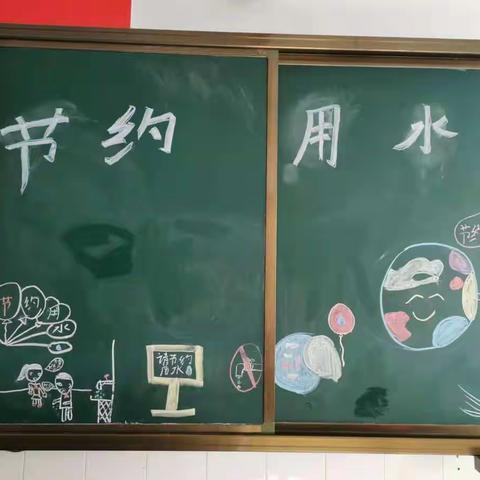 节约用水
节约用水
请节约
用水
节约